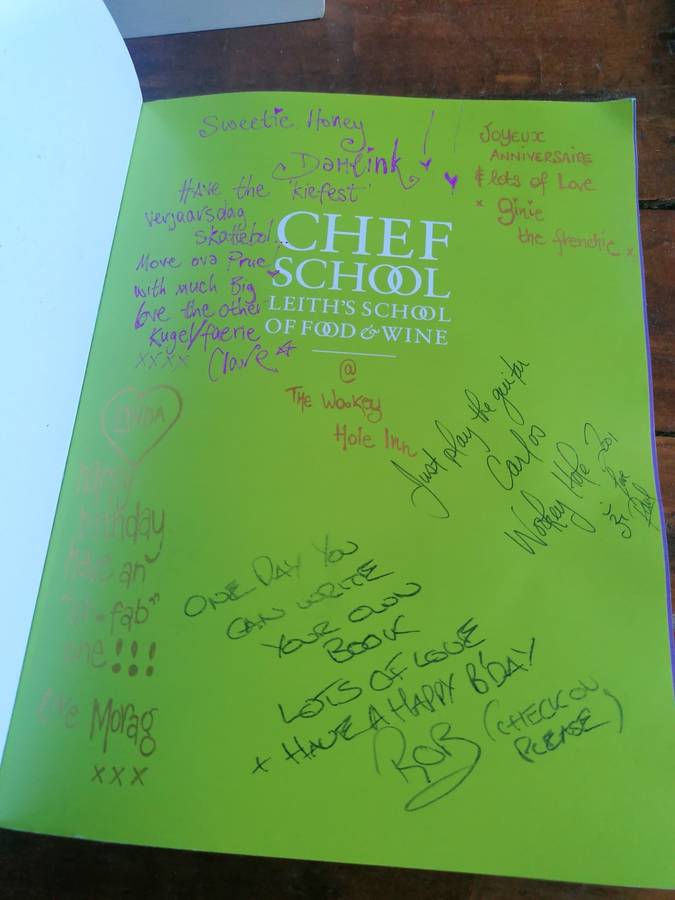 Sweetie Honey
Dahlink!
Have the "kiefest"
verjaarsdag
skattebol...
Move ova Prue
with much Big
love the other
Kugel/faerie
xxxx Clare
JOYEUX
ANNIVERSAIRE
& lots of Love
x Ginie
the frenchie x
CHEF
SCHOOL
LEITH'S SCHOOL
OF FOOD & WINE
@
The Wookey
Hole Inn
LINDA
happy
birthday
have an
"ab-fab"
one!!!
love Morag
xxx
Just play the guitar
Carlos
Wookey Hole 2001
ONE DAY YOU
CAN WRITE
YOUR OWN
BOOK
LOTS OF LOVE
+ HAVE A HAPPY B'DAY
ROB (CHECK ON
PLEASE)